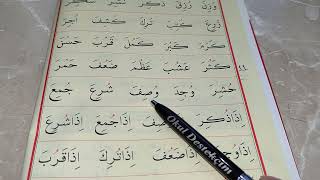 وَزِنَ رُزِقَ ذُكِرَ نُشِرَ شُكِرَ
زُرِعَ كُتِبَ تُرِكَ كُشِفَ أُجِرَ
كَرُمَ كَبُرَ كَمُلَ قَرُبَ حَسُنَ
كَثُرَ عَشُبَ عَظُمَ ضَعُفَ حَمُرَ
حُشِرَ وُجِدَ وُصِفَ شُرِعَ جُمِعَ
اِذَا ذُكِرَ اِذَا جُمِعَ اِذَا شُرِعَ
اِذَا وُجِدَ اِذَا ضَعُفَ اِذَا تُرِكَ اِذَا قَرُبَ
Okul Destek